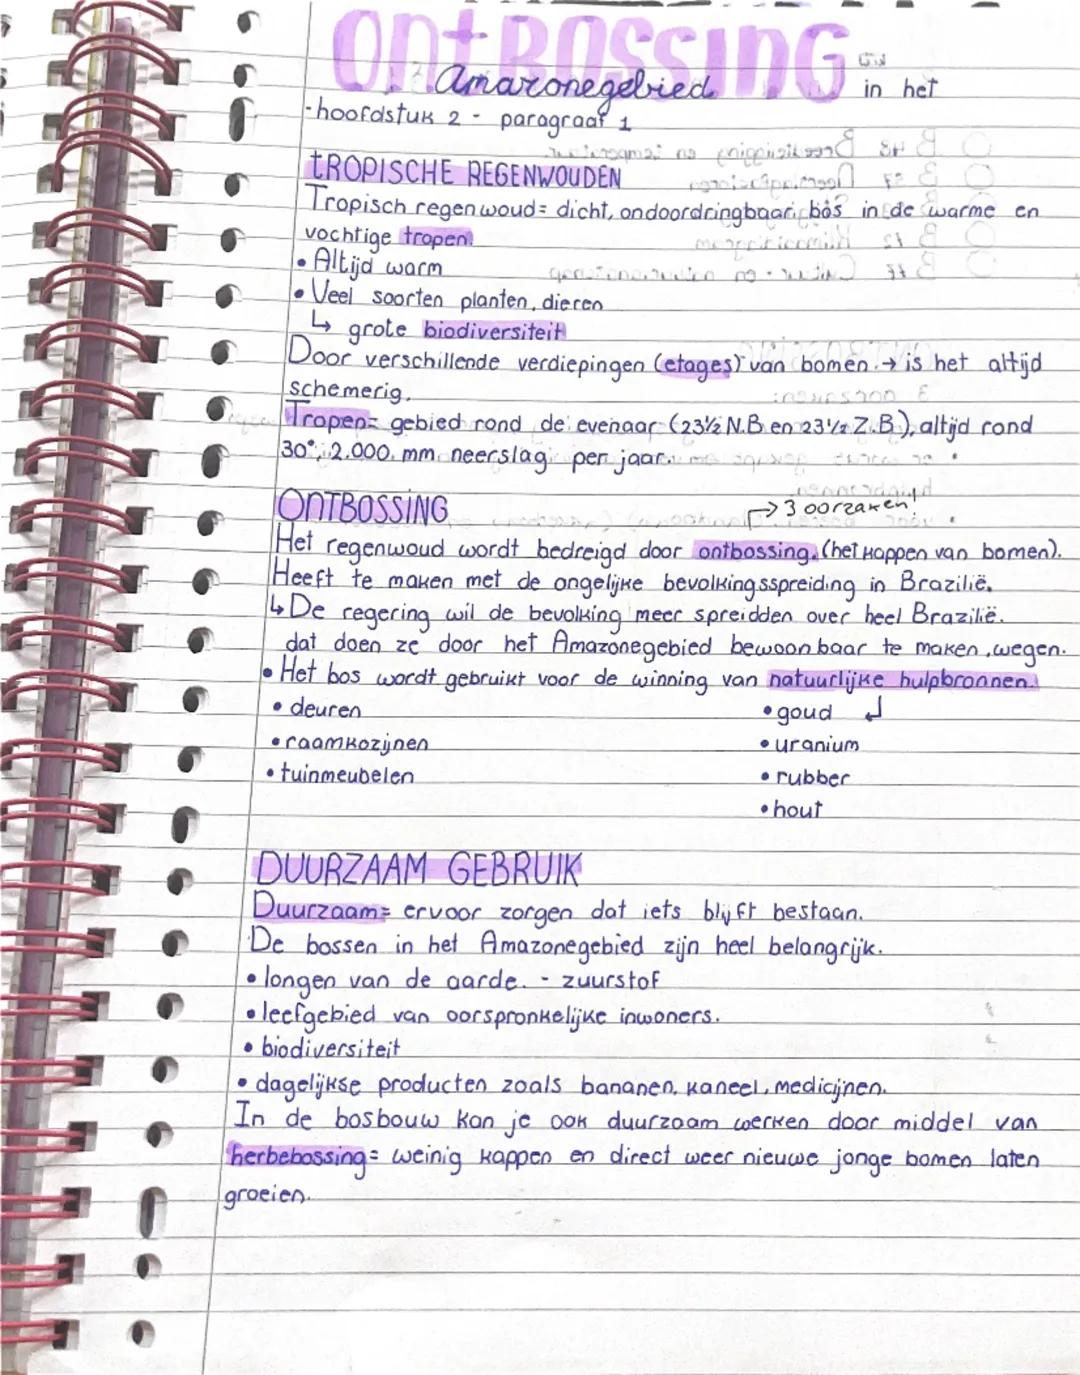 ONTBOSSING in het
Amazonegebied
- hoofdstuk 2 - paragraaf 1
TROPISCHE REGENWOUDEN
Tropisch regenwoud = dicht, ondoordringbaar bos in de warme en
vochtige tropen.
• Altijd warm
• Veel soorten planten, dieren
↳ grote biodiversiteit
Door verschillende verdiepingen (etages) van bomen → is het altijd
schemerig.
Tropen = gebied rond de evenaar (23½ N.B en 23½ Z.B), altijd rond
30°, 2.000 mm neerslag per jaar.
ONTBOSSING
→ 3 oorzaken!
Het regenwoud wordt bedreigd door ontbossing. (het kappen van bomen).
Heeft te maken met de ongelijke bevolkingsspreiding in Brazilië.
↳ De regering wil de bevolking meer spreidden over heel Brazilië.
dat doen ze door het Amazonegebied bewoonbaar te maken, wegen.
• Het bos wordt gebruikt voor de winning van natuurlijke hulpbronnen.
• deuren • goud ↲
• raamkozijnen • uranium
• tuinmeubelen • rubber
• hout
DUURZAAM GEBRUIK
Duurzaam = ervoor zorgen dat iets blijft bestaan.
De bossen in het Amazonegebied zijn heel belangrijk.
• longen van de aarde. - zuurstof
• leefgebied van oorspronkelijke inwoners.
• biodiversiteit
• dagelijkse producten zoals bananen, kaneel, medicijnen.
In de bosbouw kan je ook duurzaam werken door middel van
herbebossing = weinig kappen en direct weer nieuwe jonge bomen laten
groeien.